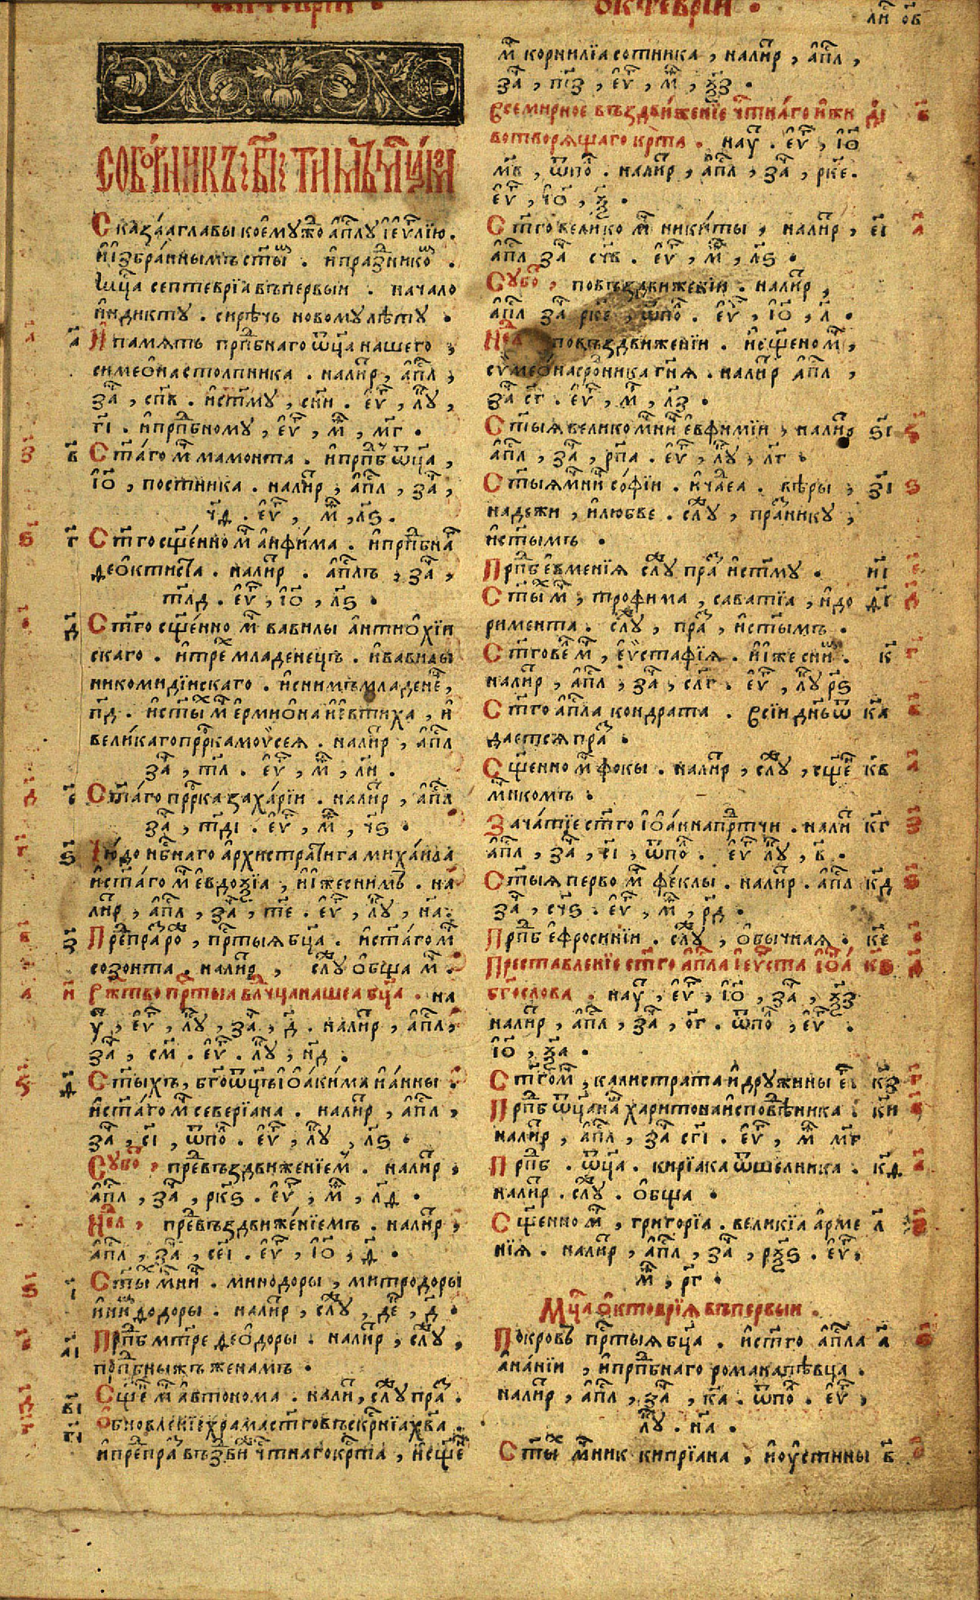 ОКТЕВРИ
С каза́ а главы кое́мꙋжо а҆п҇лꙋ і҆ є҆ѵ҇лїю.
и҆ і҆збра́ннымъ ст҃ы . и҆ пра́знико .
мц҇а септеврїа въ первыи . начало
и҆ндиктꙋ . сирѣчь новомꙋ лѣтꙋ .
а҃ Памѧть прп҇бнаго ѿц҃а нашего ,
симео́на столпника . на лиⷮр , а҆п҇л ,
за҇ , спв . и҆ ст҃мꙋ , сн҃и . є҆ѵ҇ , лꙋ ,
г҃і . и҆ прп҇бномꙋ , є҆ѵ҇ , м҇ , мг .
в҃ Ст҃а́го м҇ мамонта . и҆ прп҇б ѿц҃а ,
і҆о҇ , постника . на лиⷮр , а҆п҇л , за҇ ,
чд . є҆ѵ҇ , м҇ , лѕ .
г҃ Ст҃го сщ҃е́нно м҇ а҆нфима . и҆ прп҇бна
ѳео́ктиста . на лиⷮр . а҆п҇лъ , за҇ ,
тлд . є҆ѵ҇ , і҆о҇ , лѕ .
д҃ Ст҃го сщ҃енно м҇ вавилы а҆нтио҆хїи
скаго . и҆ тре младенецъ . и҆ вавилы
никомидїискаго . и҆ с нимъ младене҇ ,
п҃д . и҆ ст҃ы м҇ є҆рмио҆на и҆ є҆втиха , и҆
вели́каго пр҇рка моѵ҆сеа . на лиⷮр , а҆п҇л
за҇ , тл . є҆ѵ҇ , м҇ , ли .
є҃ Ст҃а́го пр҇рка заха́рїи . на лиⷮр , а҆п҇л
за҇ , тді . є҆ѵ҇ , м҇ , чѕ .
ѕ҃ Чю́до нб҇наго а҆рхистрати́га миха́ила
и҆ ст҃а́го м҇ є҆вдоѯїа , и҆ и҆же с нимъ . на
лиⷮр , а҆п҇л , за҇ , те . є҆ѵ҇ , лꙋ , на .
з҃ Пре҇пра ро҇ , пр҇тыѧ бц҃а . и҆ ст҃а́го м҇
созонта . на лиⷮр , слꙋ о҆бща м҇ .
и҃ Рж҇тво пр҇тыа вл҇чца нашеа бц҃а . на
ѹ҇ , є҆ѵ҇ , лꙋ , за҇ , д҃ . на лиⷮр , а҆п҇л ,
за҇ , см . є҆ѵ҇ . лꙋ , нд .
ѳ҃ Ст҃ыхъ , бг҃о ѿц҃ъ і҆о҆аки́ма и҆ а҆́нны .
и҆ ст҃а́го м҇ северїана . на лиⷮр , а҆п҇л ,
за҇ , сі , ѿпо҇ . є҆ѵ҇ , лꙋ , лѕ .
Сꙋбо҇ , пре въздвиженїем . на лиⷮр ,
а҆п҇л , за҇ , ркѕ . є҆ѵ҇ , м҇ , лѳ .
Нл҇ѧ , пре въздвиже́нїемъ . на лиⷮр ,
а҆п҇л , за҇ , сеі . є҆ѵ҇ , і҆о҇ , ѳ҃ .
і҃ Ст҃ы мн҇и . минодоры , митродоры
и҆ ни́мфодоры . на лиⷮр , слꙋ , де҇ , д .
а҃і Прп҇б мт҃ре ѳео҆доры . на лиⷮр , слꙋ ,
прп҇бныжъ женамъ .
в҃і Сще м҇ а҆втонома . на ли , слꙋ пра .
г҃і О҆бновле́нїе храма ст҃го въскр҇нїа хв҃а .
и҆ пре҇пра въздви чт҇наго кр҇та , и҆ сще
м҇ корнилїа сотника , на лиⷮр , а҆п҇л ,
за҇ , пз . є҆ѵ҇ , м҇ , ѯз .
Всемирное въздви́женїе чт҇на́го и҆ жи д҃і
вотворѧ́щаго кр҇та . на ѹ҇ . є҆ѵ҇ , і҆о҇
мв , ѿпо҇ . на лиⷮр , а҆п҇л , за҇ , рке .
є҆ѵ҇ , і҆о҇ , ѯ .
Ст҃го вели́ко м҇ ники́ты , на лиⷮр , е҃і
а҆п҇л за҇ счв . є҆ѵ҇ , м҇ , лѕ .
Сꙋбо҇ , по въздвиженїи . на лиⷮр ,
а҆п҇л за҇ рке , ѿпо҇ . є҆ѵ҇ , і҆о҇ , л .
Нл҇ѧ по въздвиженїи . и҆ сщ҃ено м҇ ,
сѵмео҆на сро́дника гн҃ѧ . на лиⷮр а҆п҇л ,
за҇ сг . є҆ѵ҇ , м҇ , лз .
Ст҃ыѧ велико мн҇и є҆вфимїи , на лиⷮр ѕ҃і
а҆п҇л , за҇ , рпа . є҆ѵ҇ , лꙋ , лг .
Ст҃ыѧ мн҇и со́фїи . и҆ ча҇еа . вѣры , з҃і
надежи , и҆ любве . слꙋ , пра́никꙋ ,
и҆ ст҃ымъ .
Прп҇б є҆вменїѧ слꙋ пра и҆ ст҃мꙋ . и҃і
Ст҃ы м҇ , трофима , саватїа , и҆ до ѳ҃і
римента . слꙋ , пра , и҆ ст҃ымъ .
Ст҃го ве м҇ , є҆ѵстафїѧ . и҆ и҆же с ни . к҃
на лиⷮр , а҆п҇л , за҇ , слг . є҆ѵ҇ , лꙋ рѕ
Ст҃го а҆п҇ла кондрата . в си́и дн҃ь ѿ к҃а
даетсѧ пра .
Сщ҃енно м҇ фокы . на лиⷮр , слꙋ , сще к҃в
м҇никомъ .
Зача́тїе ст҃го і҆о҆а́нна пр҇тчи . на ли к҃г
а҆п҇л , за҇ , сі , ѿпо҇ . є҆ѵ҇ лꙋ , в .
Ст҃ыѧ перво м҇ ѳе́клы . на лиⷮр . а҆п҇л к҃д
за҇ , счѕ . є҆ѵ҇ , м҇ , рд .
Прп҇б є҆фросинїи . слꙋ , о҆бычнаѧ . к҃е
Преставленїе ст҃го а҆п҇ла і҆ є҆ѵ҇ста і҆о҆а́ к҃ѕ
бг҃ослова . на ѹ҇ , є҆ѵ҇ , і҆о҇ , за҇ , ѯз
на лиⷮр , а҆п҇л , за҇ , ог . ѿпо҇ , є҆ѵ҇ .
і҆о҇ , ѯа .
Ст҃го м҇ , калистрата и҆ дрꙋжины є҆ к҃з
Прп҇б ѿц҃а на харитона и҆сповѣ҇ника . к҃и
на лиⷮр , а҆п҇л , за҇ сгі . є҆ѵ҇ , м҇ мг
Прп҇б . ѿц҃а . кирїака ѿшелника . к҃ѳ
на лиⷮр . слꙋ . о҆бща .
Сщ҃енно м҇ , григорїа . великїа а҆рме л҃
нїѧ . на лиⷮр , а҆п҇л , за҇ , рѯѕ . є҆ѵ҇ ,
м҇ , рг .
Мц҇а о҆ктоврїѧ въ первыи .
Покровъ пр҇тыѧ бц҃а . и҆ ст҃го а҆п҇ла а҃
а҆на́нїи , и҆ прп҇бнаго романа пѣвца .
на лиⷮр , а҆п҇л , за҇ , ка . ѿпо҇ . є҆ѵ҇ ,
лꙋ . на .
Ст҃ы м҇ник кипрїана , и҆ ѹ҆стины в҃